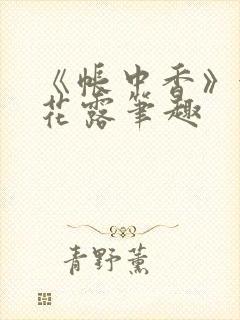 《帐中香》
花露笔趣
青野薰